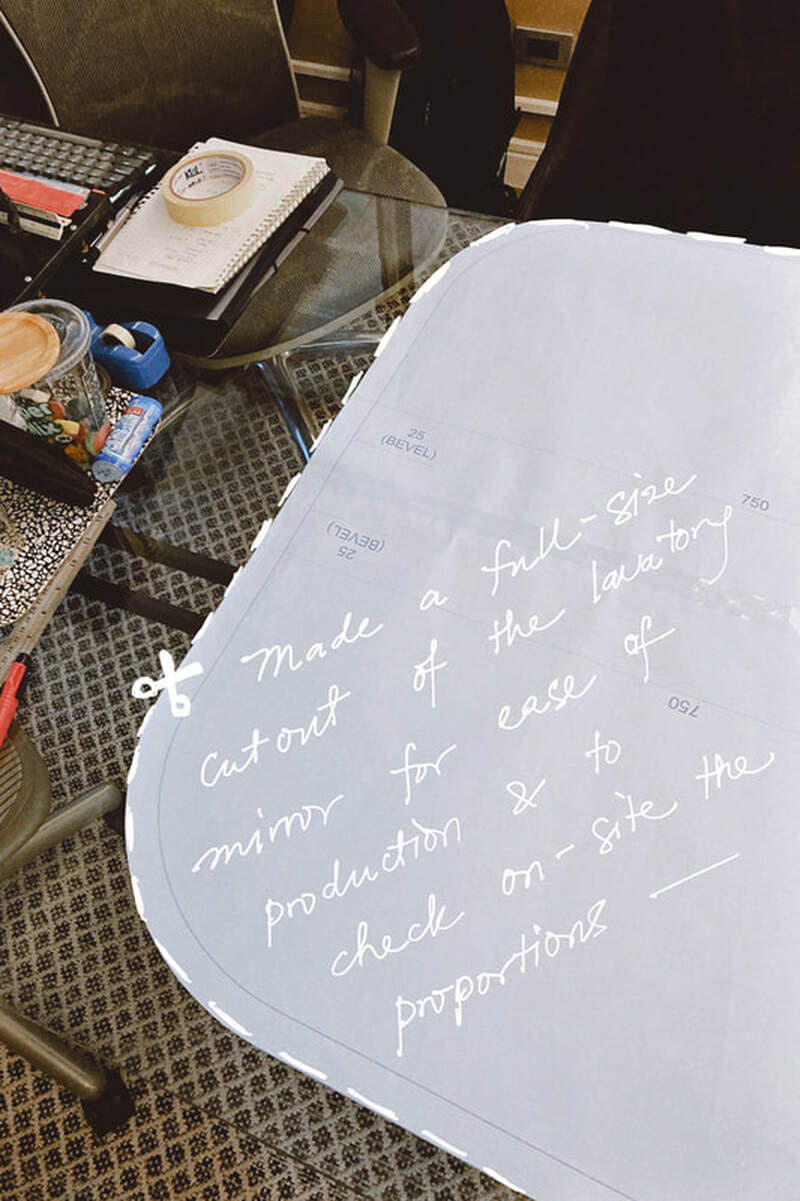 25
(BEVEL)
750
25
(BEVEL)
750
Made a full-size
cutout of the lavatory
mirror for ease of
production & to
check on-site the
proportions —